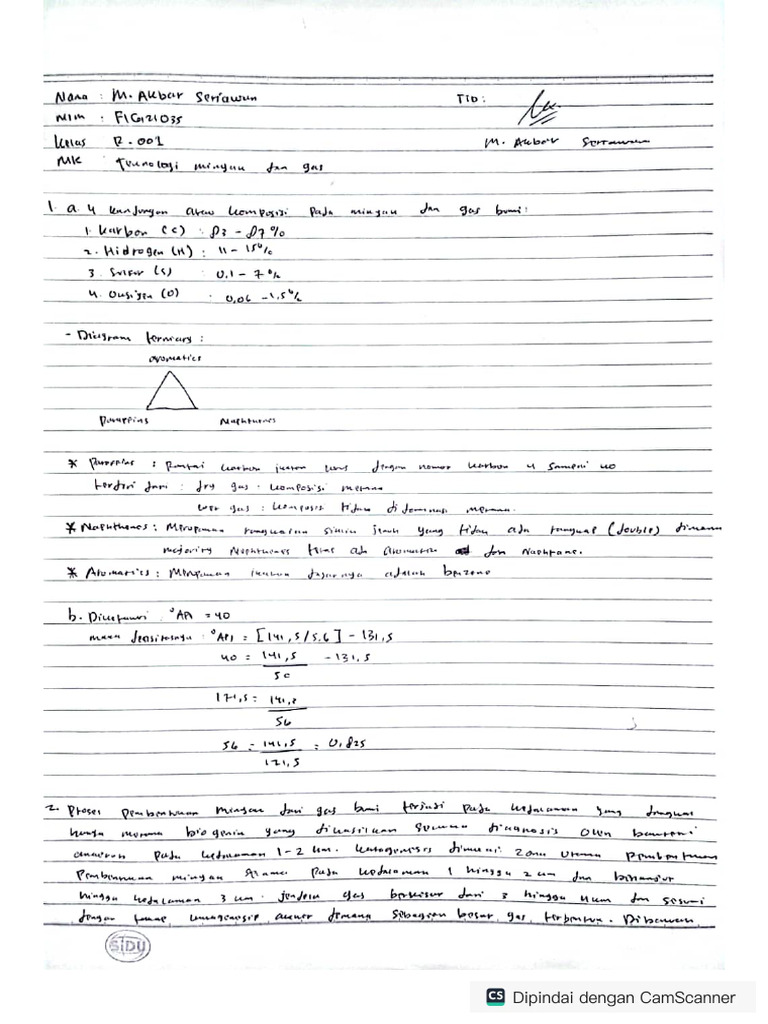 Nama : M. Akbar Seriawan
TTD :
NIM : F1G121035
Kelas R.001
M. Akbar Seriawan
MK Teknologi minyak dan gas
1. a. 4 kandungan atau komposisi pada minyak dan gas bumi :
1. Karbon (C) : 83 - 87 %
2. Hidrogen (H) : 11 - 15 %
3. Sulfur (S) : 0,1 - 7 %
4. Oksigen (O) : 0,06 - 1,5 %
- Diagram ternary :
aromatics
Paraffins Naphthenes
* Paraffins : Rantai karbon lurus dengan nomor karbon 4 sampai 40
terdiri dari : dry gas : komposisi metana
wet gas : komposisi tidak didominasi metana.
* Naphthenes : Merupakan rangkaian siklin jenuh yang tidak ada rangkap (double) dimana
majority Naphthenes dan Naphtane.
* Aromatics : Merupakan ikatan dasarnya adalah benzena
b. Diketahui °API = 40
maka densitasnya : °API = [141,5/5.6] - 131,5
40 = 141,5 - 131,5
SG
171,5 = 141,5
SG
SG = 141,5 = 0,825
171,5
2. Proses pembentukan minyak dan gas bumi terjadi pada kedalaman yang dangkal
hanya metana biogenik yang dihasilkan secara diagnosis oleh bakteri
anaerob pada kedalaman 1-2 km. katagenesis dimulai zona utama pembentukan
Pembentukan minyak pada kedalaman 1 hingga 2 km dan berlanjut
hingga kedalaman 3 km. jendela gas berkisar dari 3 hingga 4 km dan sesuai
dengan tahap katagenesis akhir dimana sebagian besar gas terbentuk. Dibawah
SIDU
CS Dipindai dengan CamScanner